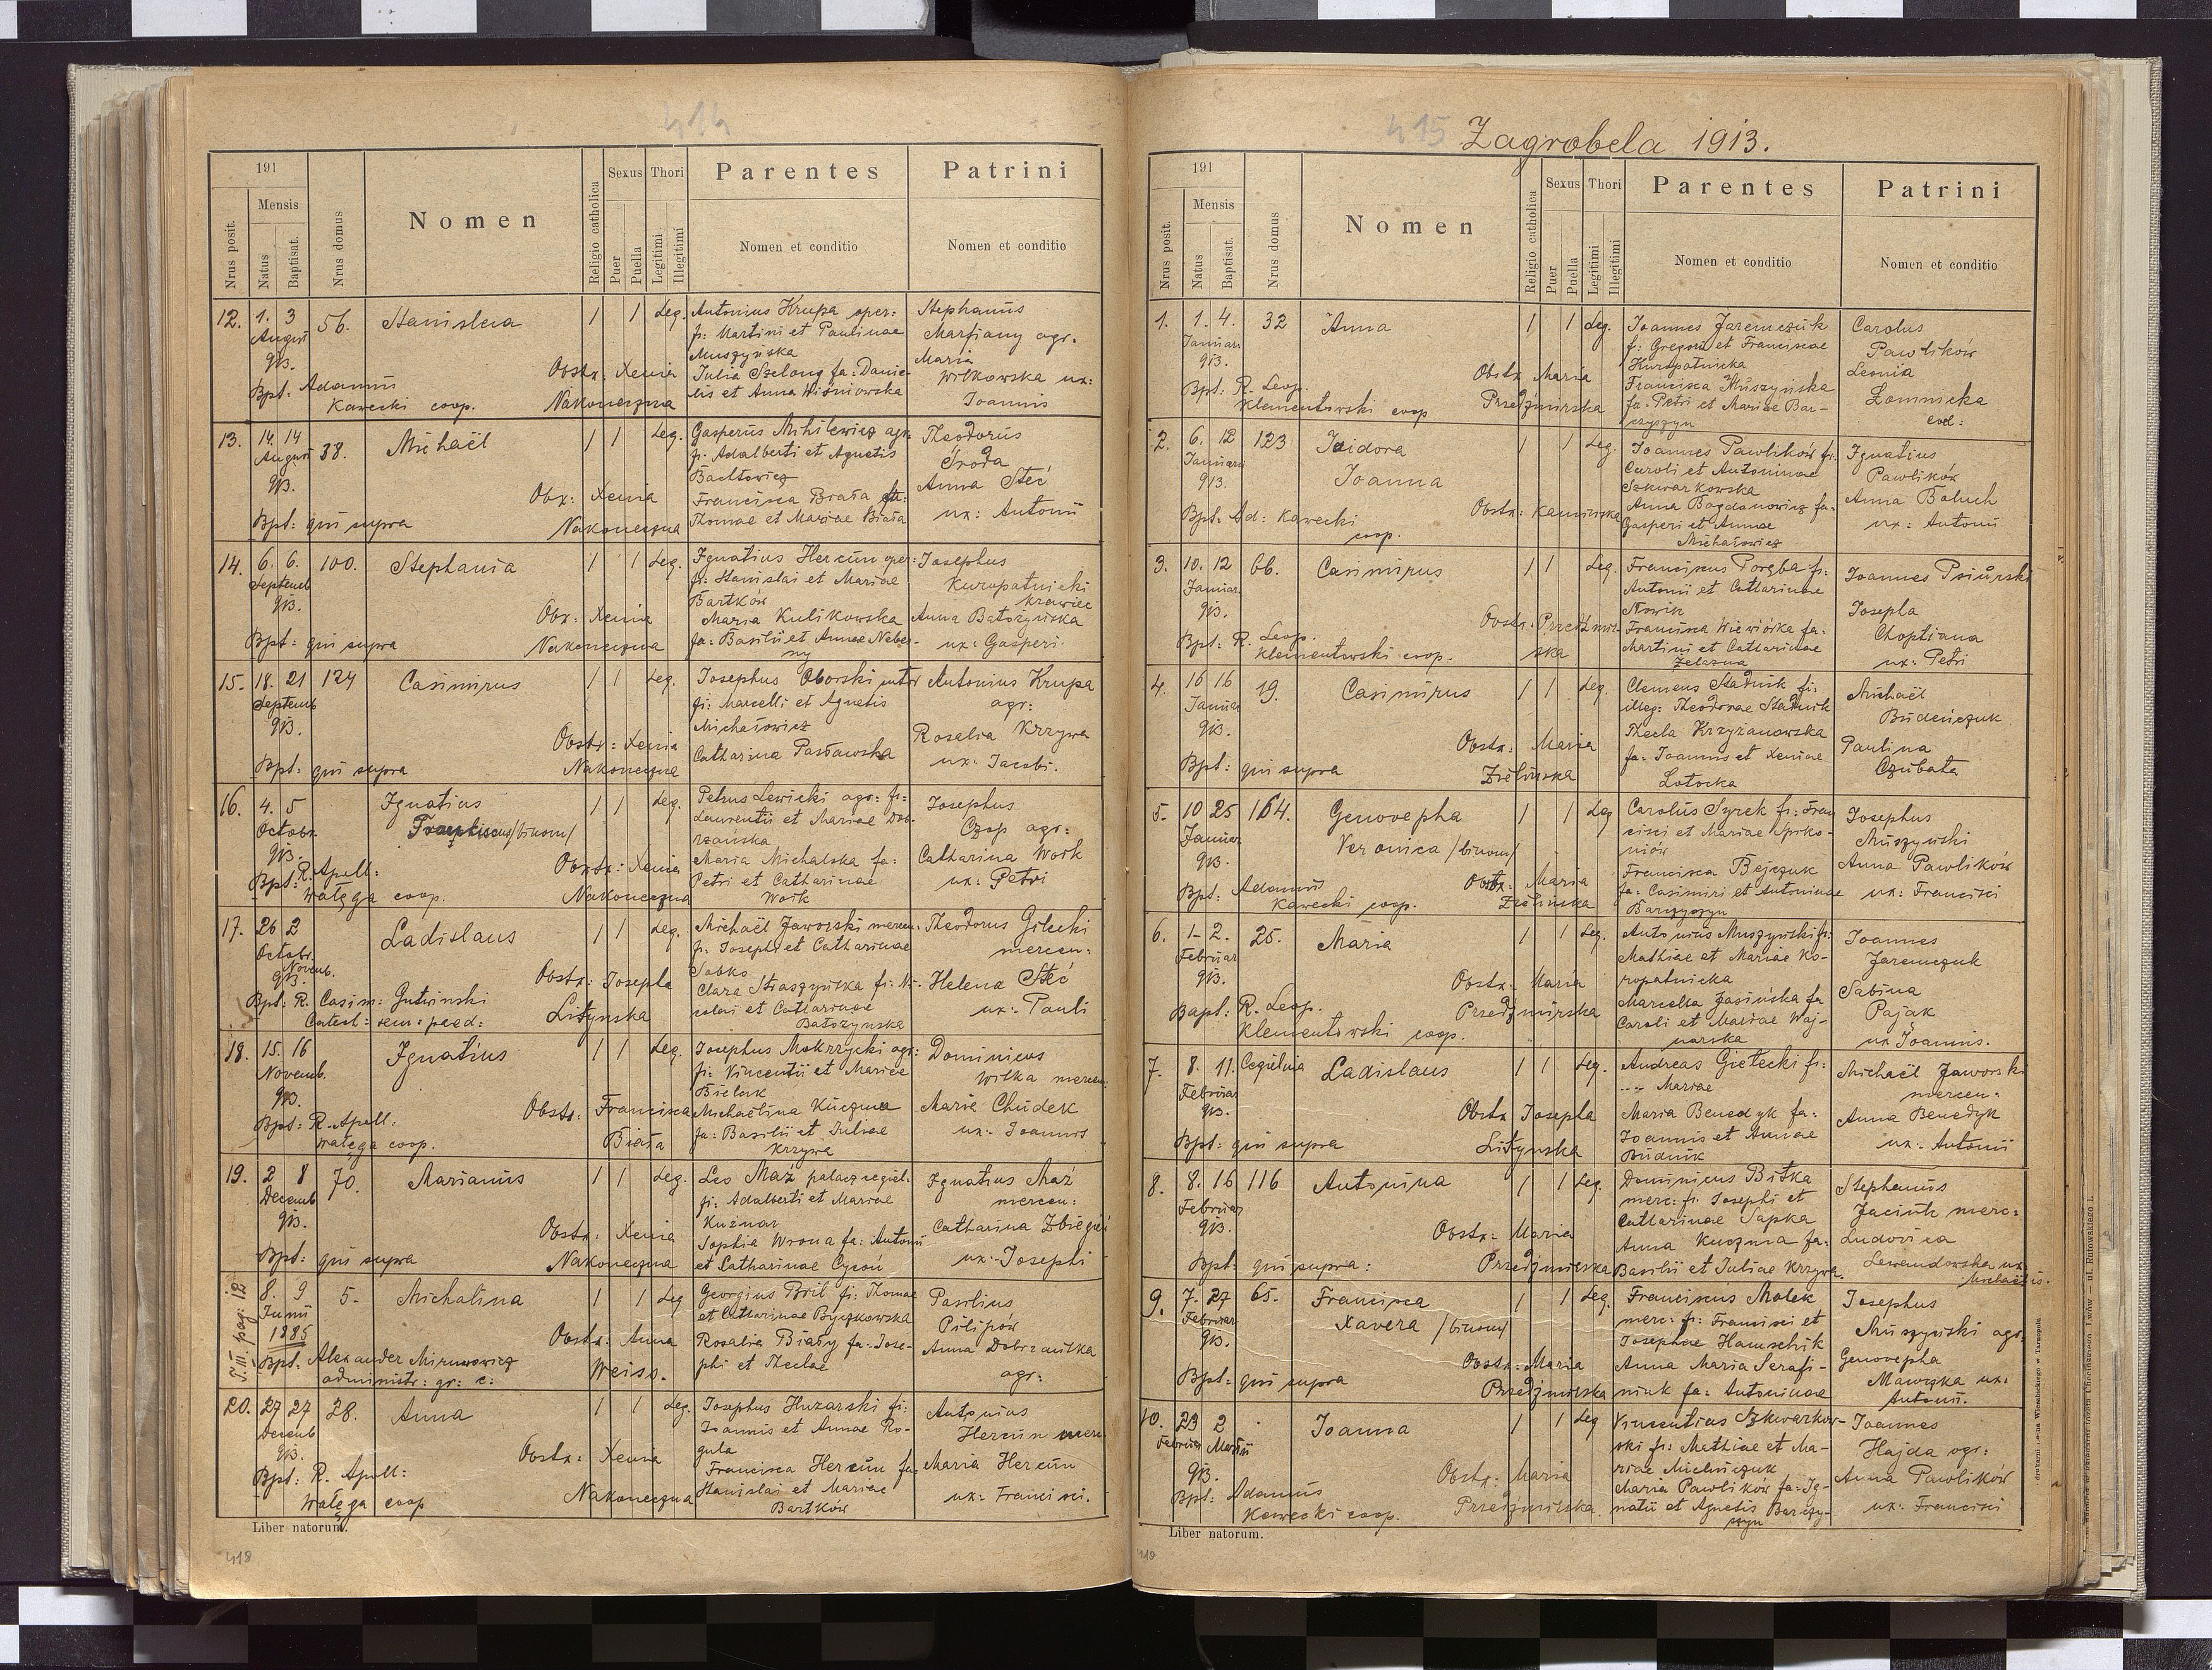 414
191
Nrus posit.
Mensis
Natus
Baptisat.
Nrus domus
Nomen
Religio catholica
Sexus
Puer
Puella
Thori
Legitimi
Illegitimi
Parentes
Nomen et conditio
Patrini
Nomen et conditio
12. 1. 3 56. Stanislava 1 1 Leg. Antonius Krupa oper: Stephanus
August fi: Martini et Paulinae Marfiany agr.
913. Muszyńska Maria
Obstx. Xenia Julia Szelong fa: Danie- Witkowska ux:
Bpt: Adamus lis et Anna Wiśniowska Joannis
Kawecki coop. Nakoneczna
13. 14. 14 38. Michaël 1 1 Leg. Gasperus Mihilewicz agr. Theodorus
August fi. Adalberti et Agnetis Środa
913. Bachtowicz Anna Steć
Obx: Xenia Francisca Biała fa: ux: Antonii
Bpt: qui supra Nakoneczna Thomae et Mariae Biała
14. 6. 6. 100. Stephania 1 1 Leg. Ignatius Hercun oper: Josephus
Septemb fi: Stanislai et Mariae Kuropatnicki
913. Bartków krawiec
Obx: Xenia Maria Kulikowska Anna Batożyńska
Bpt: qui supra Nakoneczna fa: Basilii et Annae Nebes- ux: Gasperi
ny
15. 18. 21 124 Casimirus 1 1 Leg. Josephus Oborski Antonius Krupa
Septemb fi: Marcelli et Agnetis agr:
913. Michałowicz Rosalia Krzywa
Obstx: Xenia Catharina Pasławska ux: Jacobi.
Bpt: qui supra Nakoneczna
16. 4. 5 Ignatius 1 1 Leg. Petrus Lewicki agr: fi: Josephus
Octobr. Franciscus /binom/ Laurentii et Mariae Dob- Czop agr:
913. rzańska Catharina Woik
Bpt: R. Apoll: Obstx: Xenia Maria Michalska fa: ux: Petri
Wałęga coop. Nakoneczna Petri et Catharinae
Woik
17. 26 2 Ladislaus 1 1 Leg. Michaël Jaworski mercen. Theodorus Gilecki
Octobr. fi. Josephi et Catharinae mercen:
Novemb. Sabko Helena Steć
913. Obstx: Josepha Clara Straszyńska fi: Ni- ux: Pauli
Bpt: R. Casim: Gutwinski Litynska colai et Catharinae
Catech: sem: paed: Batożynska
18. 15. 16 Ignatius 1 1 Leg. Josephus Mokrzycki agr: Dominicus
Novemb. fi: Vincentii et Mariae Wilka mercen:
913. Bieluk Maria Chudek
Bpt: R. Apoll. Obstx: Francisca Michaëlina Kuczma ux: Joannis
Wałęga coop. Biała fa: Basilii et Juliae
Krzywa
19. 2 8 70. Marianus 1 1 Leg. Leo Maź palacz cegiel. Ignatius Maź
Decemb fi: Adalberti et Mariae mercen:
913. Kuźniar Catharina
Obstx: Xenia Sophia Wrona fa: Antonii ux: Josephi
Bpt: qui supra Nakoneczna et Catharinae Cycoń
T. III. pag: 12 8. 9 5. Michalina 1 1 Leg Georgius Bril fi: Thomae Basilius
Junii et Catharinae Byczkowska Pilipów
1885 Obstx: Anna Rosalia Biały fa: Jose- Anna Dobrzańska
Bpt: Alexander Mirunowicz Weiss. phi et Theclae agr:
administr: gr: c:
20. 27 27 28. Anna 1 1 Leg. Josephus Huzarski fi: Antonius
Decemb Joannis et Annae Ro- Hercun merc
913. gula Maria Hercun
Bpt: R. Apoll: Obstx: Xenia Francisca Hercun fa ux: Francisci.
Wałęga coop Nakoneczna Stanislai et Mariae
Bartków
Liber natorum.
418
415
Zagrobela 1913.
191
Nrus posit.
Mensis
Natus
Baptisat.
Nrus domus
Nomen
Religio catholica
Sexus
Puer
Puella
Thori
Legitimi
Illegitimi
Parentes
Nomen et conditio
Patrini
Nomen et conditio
1. 1. 4. 32 Anna 1 1 Leg. Joannes Jaremczuk Carolus
Januar fi: Gregorii et Franciscae Pawlików
913. Kuropatnicka Leonia
Bpt: R. Leop. Obstx Maria Francisca Muszyńska Łomnicka
Klementowski coop Przedzmirska fa. Petri et Mariae Bar- cod:
czyszyn
2. 6. 12 123 Isidora 1 1 Leg. Joannes Pawlików fi. Ignatius
Januarii Joanna Caroli et Antoninae Pawlików
913. Szkwarkowska Anna Baluch
Bpt: Ad: Kawecki Obstx: Kaminska Anna Bogdanowicz fa- ux: Antonii
coop. Gasperi et Annae
Michałowicz
3. 10. 12 66. Casimirus 1 1 Leg. Franciscus Poręba fi: Joannes Psiurski
Januar Antonii et Catharinae Josepha
913. Nowik Choptiana
Bpt: R. Leop. Obstx: Przedzmir- Francisca Wiewiórka fa. ux: Petri
Klementowski coop. ska Martini et Catharinae
Żelazna
4. 16 16 19. Casimirus 1 1 Leg. Clemens Stadnik fi: Michaël
Januar illeg: Theodorae Stadnik Budeńczuk
913. Obstx: Maria Thecla Krzyżanowska Paulina
Bpt: qui supra Zielińska fa: Joannis et Xeniae Czubata
Lotocka
5. 10 25 164. Genovepha 1 1 Leg Carolus Syrek fi: Fran Josephus
Januar Veronica /binom/ cisci et Mariae Muszyński
913. Obstx: Maria Francisca Bejczuk Anna Pawlików
Bpt: Adamus Zielińska fa: Casimiri et Antoninae ux: Francisci
Kawecki coop. Barczyszyn
6. 1- 2. 25. Maria 1 1 Leg. Antonius Muszyński fi: Joannes
Februar Mathiae et Mariae Ko- Jaremczuk
913. Obstx: Maria ropatnicka Sabina
Bapt: R. Leop. Przedzmirska Marcella Jasińska fa Pająk
Klementowski coop. Caroli et Mariae Waj- ux Joannis.
narska
7. 8. 11. Cegielnia Ladislaus 1 1 Leg. Andreas Giełecki fi: Michaël Jaworski
Februar --- Mariae mercen:
913. Obstx Josepha Maria Benedyk fa: Anna Benedyk
Bpt: qui supra Litynska Joannis et Annae ux: Antonii
Budnik
8. 8. 16 116 Antonina 1 1 Leg. Dominicus Bitka Stephanus
Februar merc: fi: Josephi et Jaciuk merc:
913. Obstx: Maria Catharinae Sapka Ludovica
Bpt: qui supra: Przedzmirska Anna Kuczma fa: Lewandowska ux
Basilii et Juliae Krzywa. Michaëlis.
9. 7. 27 65. Francisca 1 1 Leg. Franciscus Malek Josephus
Februar Xavera /binom/ merc: fi: Francisci et Muszyński agr:
913. Josephae Hamschik Genovepha
Bpt: qui supra Obstx: Maria Anna Maria Serafi- Mawska ux:
Przedzmirska niuk fa: Antoninae Antonii.
10. 23 2 Joanna 1 1 Leg Vincentius Szkwarkow- Joannes
Februar Martii ski fi: Mathiae et Ma- Hajda agr:
913. Obstx: Maria riae Anna Pawlików
Bpt: Adamus Przedzmirska. Maria Pawlików fa: Ig- ux: Francisci
Kawecki coop. natii et Agnetis Barczy-
szyn
Liber natorum.
419